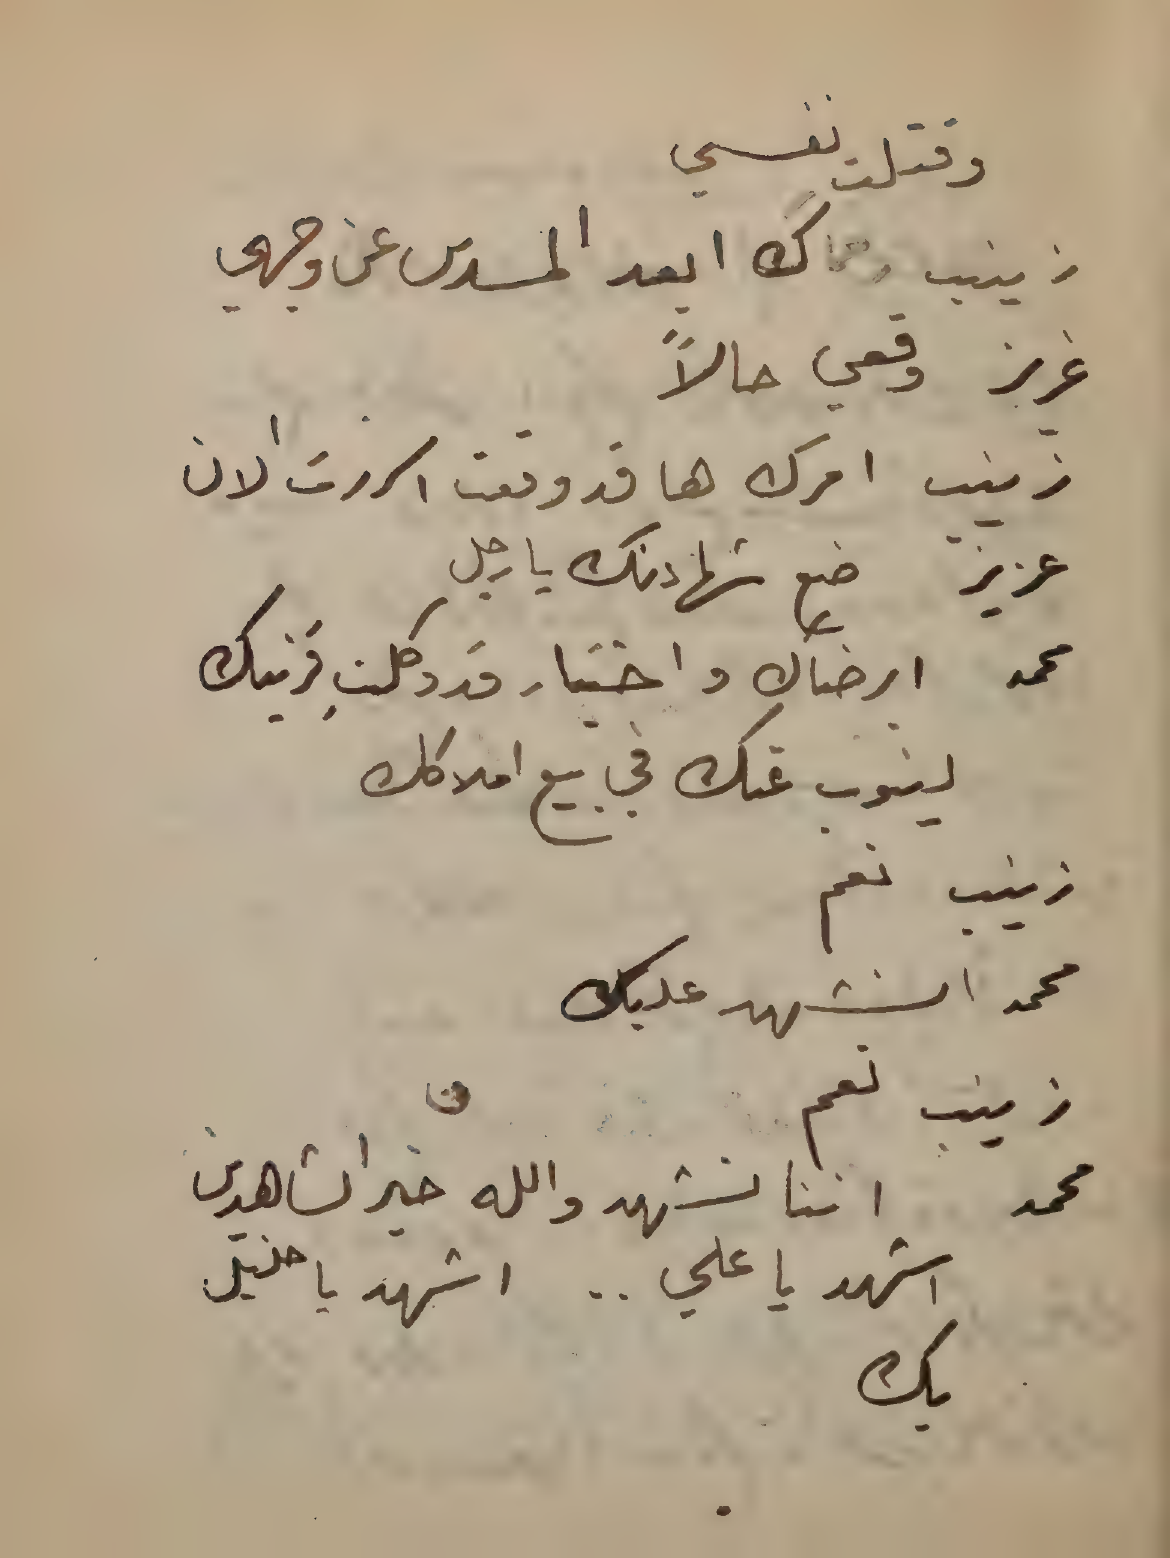 وقتلت نفسي
زينب رحماك ابعد المسدس عن وجهي
عزيز وقعي حالاً
زينب امرك ها قد وقعت اسررت الان
عزيز ضع شهادتك يا رجل
محمد ابرضاك واختيار قد وكلتِ قرنيك
لينوب عنك في بيع املاكك
زينب نعم
محمد انشهد عليك
زينب نعم
محمد اننا نشهد والله خير الشاهدين
اشهد يا علي .. اشهد يا خليل
بك